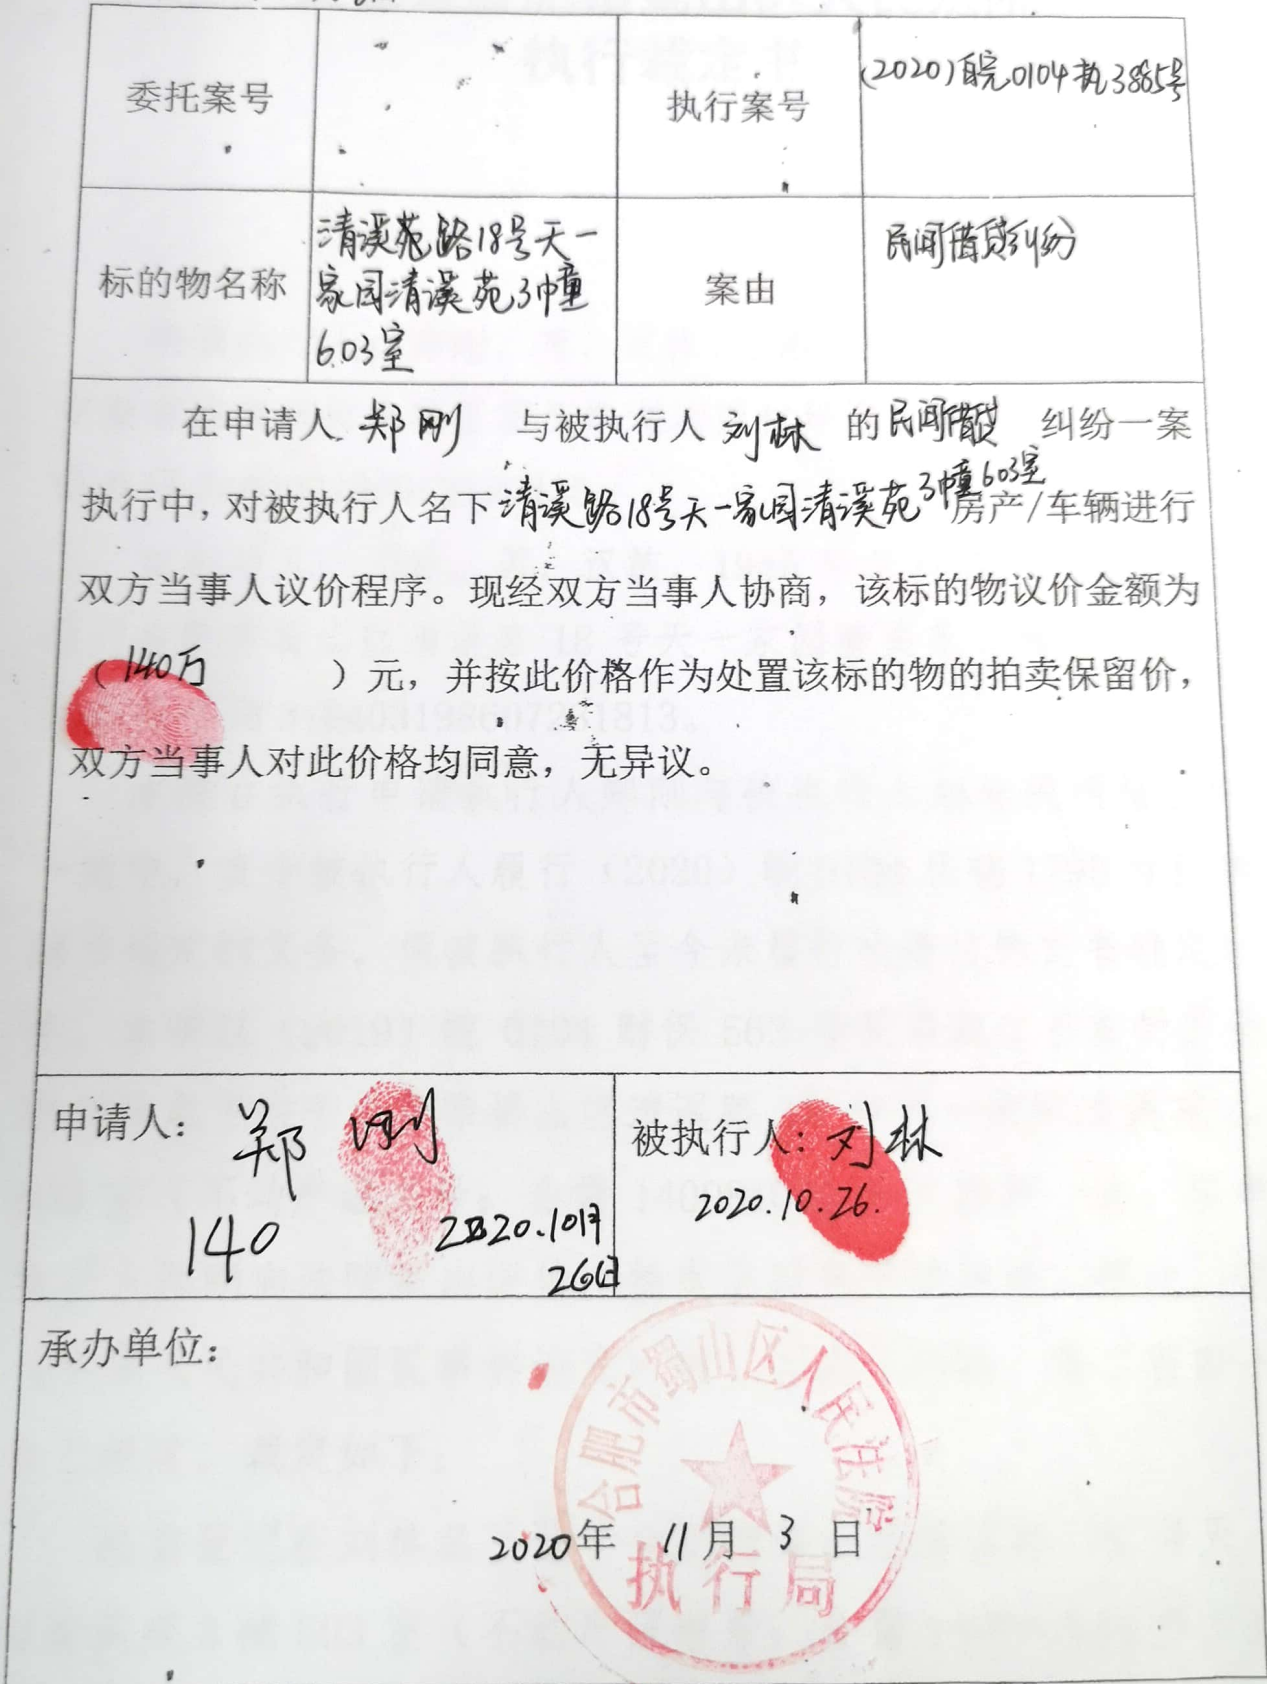 委托案号
执行案号
(2020)皖0104执3885号
标的物名称
清溪苑路18号天一
家园清溪苑3幢
603室
案由
民间借贷纠纷
在申请人 郑刚 与被执行人 刘林 的民间借贷 纠纷一案
执行中，对被执行人名下清溪路18号天一家园清溪苑3幢603室房产/车辆进行
双方当事人议价程序。现经双方当事人协商，该标的物议价金额为
（140万）元，并按此价格作为处置该标的物的拍卖保留价，
双方当事人对此价格均同意，无异议。
申请人：郑刚
140
2020.10月
26日
被执行人：刘林
2020.10.26.
承办单位：
合肥市蜀山区人民法院
2020年 11月 3日
执行局